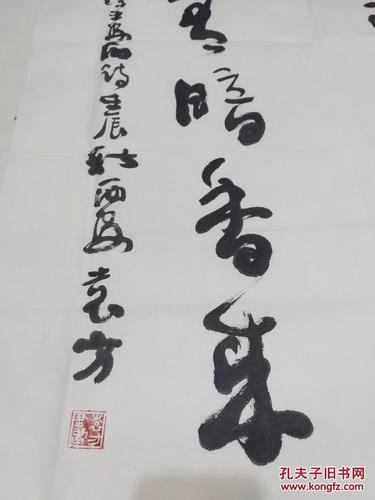 有暗香来
王安石诗壬辰秋西安袁方
孔夫子旧书网
www.kongfz.com